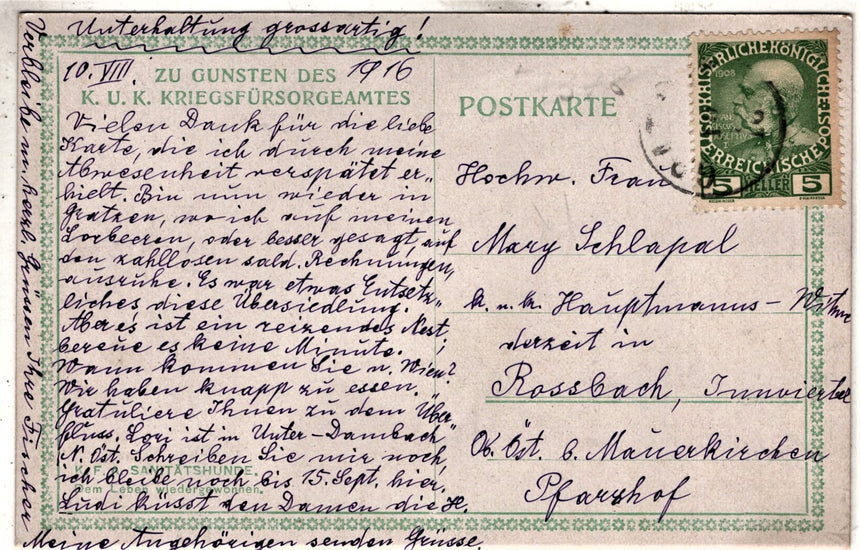 Unterhaltung grossartig!
10. VIII. 1916
ZU GUNSTEN DES
K. U. K. KRIEGSFÜRSORGEAMTES
Vielen Dank für die liebe
Karte, die ich durch meine
Abwesenheit verspätet er-
hielt. Bin nun wieder in
Gratzen, wo ich auf meinen
Lorbeeren, oder besser gesagt, auf
den zahllosen sald. Rechnungen,
ausruhe. Es war etwas Entsetz-
liches, diese Übersiedlung.
Aber es ist ein reizendes Nest,
bereue es keine Minute.
Wann kommen Sie n. Wien?
Wir haben knapp zu essen.
Gratuliere Ihnen zu dem Über-
fluss. Lori ist in Unter-Dambach
N. Öst. Schreiben Sie mir noch,
K. F. A. SANITÄTSHUNDE.
ich bleibe noch bis 15. Sept. hier.
Dem Leben wiedergewonnen.
Ludi küsst den Damen die H.
Meine Angehörigen senden Grüsse.
Verbleibe m. herzl. Grüssen Ihre Fischer
POSTKARTE
KAISERLICHE KÖNIGLICHE
ÖSTERREICHISCHE POST
1908
5 HELLER 5
Hochw. Frau
Mary Schlapal
k. u. k. Hauptmanns-Witwe
derzeit in
Rossbach, Innviertel
Ob. Öst. b. Mauerkirchen
Pfarrhof